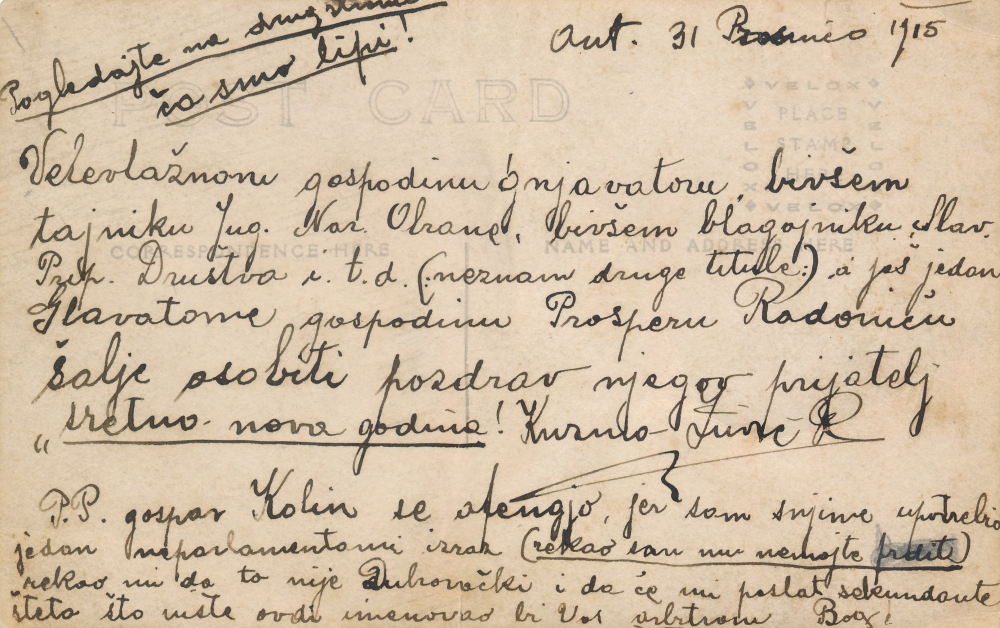 Pogledajte na drugstranu
ča smo lipi!
Ant. 31 1915
POST CARD
VELOX
PLACE
STAMP
HERE
VELOX
Velevlažnom gospodinu gnjavatoru, bivšem
tajniku Jug. Nar. Obrane, bivšem blagajniku Slav.
CORRESPONDENCE HERE
NAME AND ADDRESS HERE
Prip. Društva i. t. d. (:neznam druge titule:) a još jedan
Glavatome gospodinu Prosperu Radoniću
šalje osobiti pozdrav njegov prijatelj
„sretno nova godina! Kuzma
P.P. gospar Kolin se ofengjo, jer sam snjime upotrebio
jedan neparlamentarni izraz (rekao sam mu nemojte prdit)
rekao mi da to nije Dubrovački i da će mi poslat sekundante
šteta što niste ovdi imenovao bi Vas arbitrom Bog!